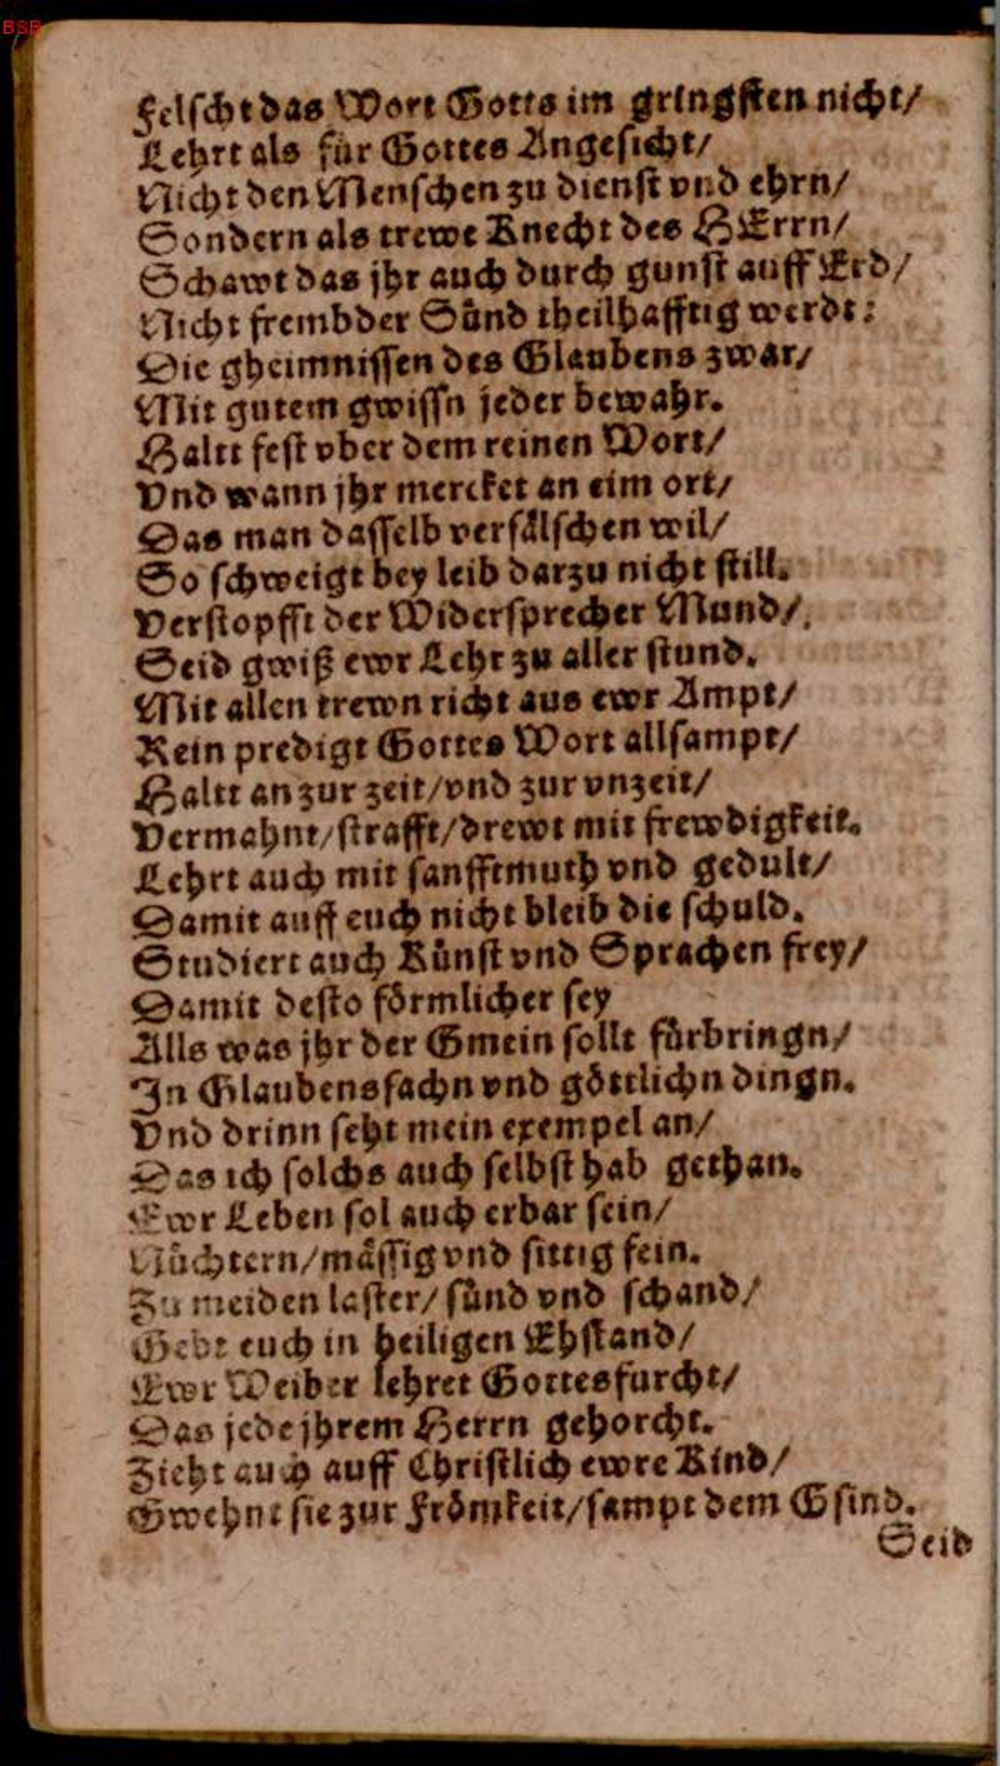 BSB
Felscht das Wort Gotts im gringsten nicht/
Lehrt als für Gottes Angesicht/
Nicht den Menschen zu dienst vnd ehrn/
Sondern als trewe Knecht des HErrn/
Schawt das jhr auch durch gunst auff Erd/
Nicht frembder Sünd theilhafftig werdt:
Die gheimnissen des Glaubens zwar/
Mit gutem gwissn jeder bewahr.
Haltt fest vber dem reinen Wort/
Vnd wann jhr mercket an eim ort/
Das man dasselb verfälschen wil/
So schweigt bey leib darzu nicht still.
Verstopfft der Widersprecher Mund/
Seid gwiß ewr Lehr zu aller stund.
Mit allen trewn richt aus ewr Ampt/
Rein predigt Gottes Wort allsampt/
Haltt an zur zeit/vnd zur vnzeit/
Vermahnt/strafft/drewt mit frewdigkeit.
Lehrt auch mit sanfftmuth vnd gedult/
Damit auff euch nicht bleib die schuld.
Studiert auch Künst vnd Sprachen frey/
Damit desto förmlicher sey
Alls was jhr der Gmein sollt fürbringn/
In Glaubenssachn vnd göttlichn dingn.
Vnd drinn seht mein exempel an/
Das ich solchs auch selbst hab gethan.
Ewr Leben sol auch erbar sein/
Nüchtern/mässig vnd sittig fein.
Zu meiden laster/ sünd vnd schand/
Gebt euch in heiligen Ehstand/
Ewr Weiber lehret Gottesfurcht/
Das jede jhrem Herrn gehorcht.
Zieht auch auff Christlich ewre Kind/
Gwehnt sie zur Frömkeit/sampt dem Gsind.
Seid